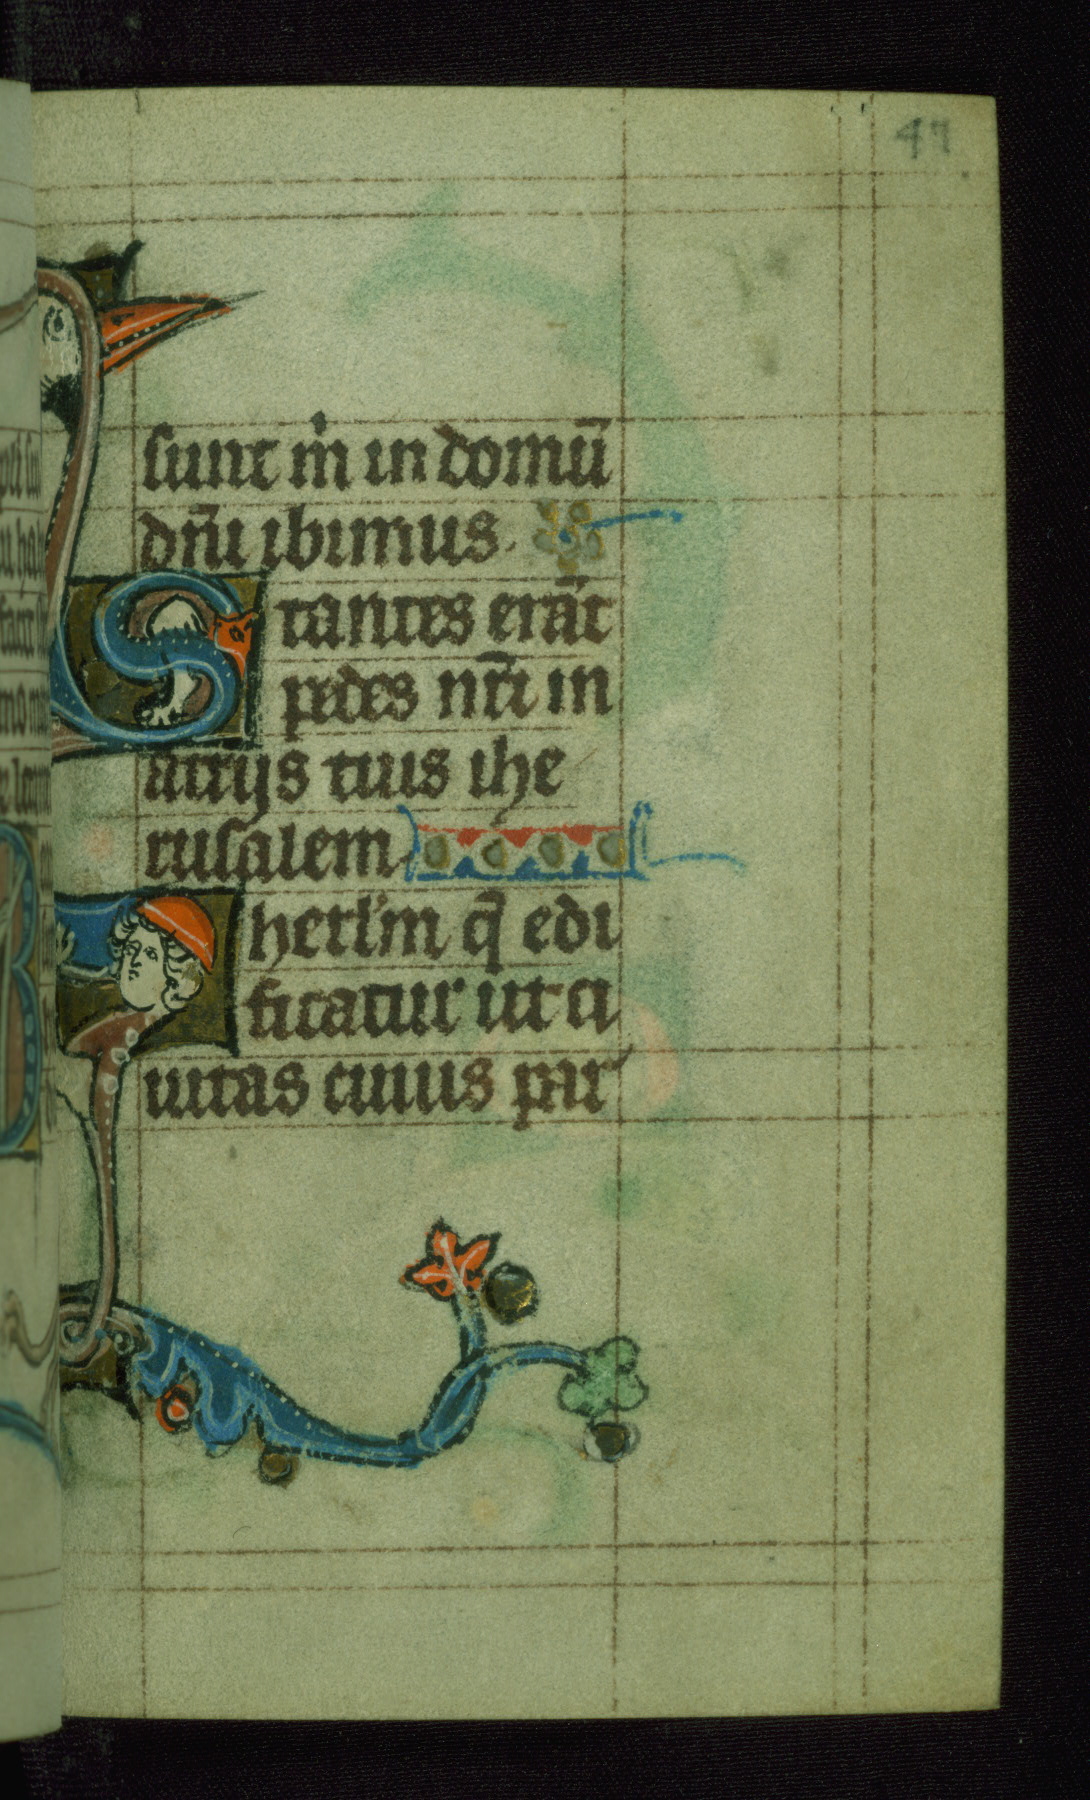 47
sunt m̄ in domū
dn̄u ibimus.
Stantes erāt
pedes nr̄i in
atrijs tuis ihe
rusalem
Iherl'm q̄ edi
ficatur ut ci
uitas cuius par